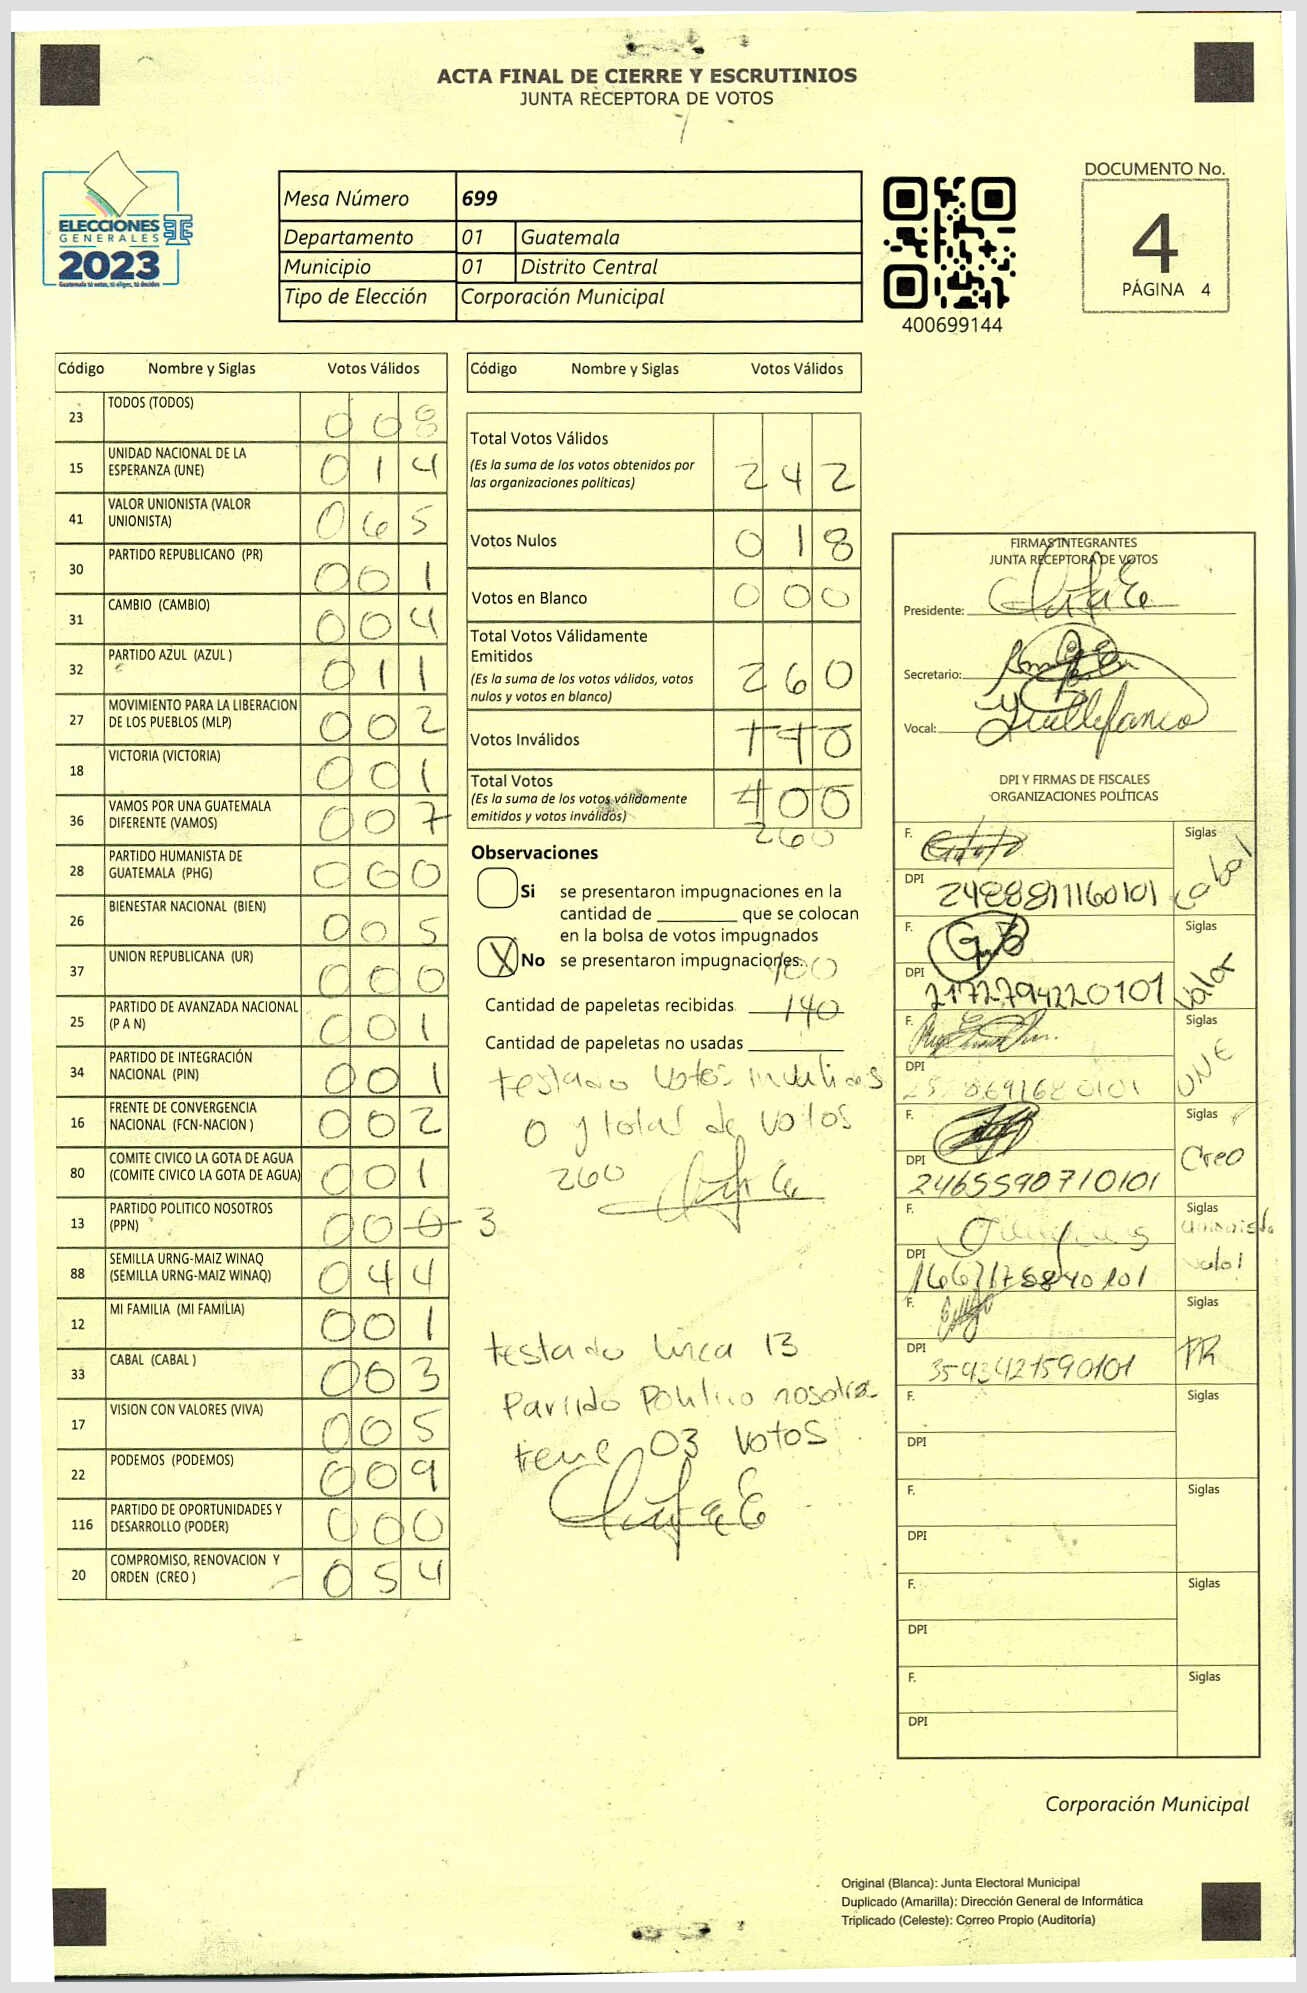 ACTA FINAL DE CIERRE Y ESCRUTINIOS
JUNTA RECEPTORA DE VOTOS
ELECCIONES
GENERALES
2023
Guatemala tú votas, tú eliges, tú decides
Mesa Número 699
Departamento 01 Guatemala
Municipio 01 Distrito Central
Tipo de Elección Corporación Municipal
400699144
DOCUMENTO No.
4
PÁGINA 4
Código Nombre y Siglas Votos Válidos
23 TODOS (TODOS) 0 0 8
15 UNIDAD NACIONAL DE LA ESPERANZA (UNE) 0 1 4
41 VALOR UNIONISTA (VALOR UNIONISTA) 0 6 5
30 PARTIDO REPUBLICANO (PR) 0 0 1
31 CAMBIO (CAMBIO) 0 0 4
32 PARTIDO AZUL (AZUL ) 0 1 1
27 MOVIMIENTO PARA LA LIBERACION DE LOS PUEBLOS (MLP) 0 0 2
18 VICTORIA (VICTORIA) 0 0 1
36 VAMOS POR UNA GUATEMALA DIFERENTE (VAMOS) 0 0 7
28 PARTIDO HUMANISTA DE GUATEMALA (PHG) 0 0 0
26 BIENESTAR NACIONAL (BIEN) 0 0 5
37 UNION REPUBLICANA (UR) 0 0 0
25 PARTIDO DE AVANZADA NACIONAL (P A N) 0 0 1
34 PARTIDO DE INTEGRACIÓN NACIONAL (PIN) 0 0 1
16 FRENTE DE CONVERGENCIA NACIONAL (FCN-NACION ) 0 0 2
80 COMITE CIVICO LA GOTA DE AGUA (COMITE CIVICO LA GOTA DE AGUA) 0 0 1
13 PARTIDO POLITICO NOSOTROS (PPN) 0 0 0 3
88 SEMILLA URNG-MAIZ WINAQ (SEMILLA URNG-MAIZ WINAQ) 0 4 4
12 MI FAMILIA (MI FAMILIA) 0 0 1
33 CABAL (CABAL ) 0 0 3
17 VISION CON VALORES (VIVA) 0 0 5
22 PODEMOS (PODEMOS) 0 0 9
116 PARTIDO DE OPORTUNIDADES Y DESARROLLO (PODER) 0 0 0
20 COMPROMISO, RENOVACION Y ORDEN (CREO ) 0 5 4
Código Nombre y Siglas Votos Válidos
Total Votos Válidos 2 4 2
(Es la suma de los votos obtenidos por
las organizaciones políticas)
Votos Nulos 0 1 8
Votos en Blanco 0 0 0
Total Votos Válidamente
Emitidos 2 6 0
(Es la suma de los votos válidos, votos
nulos y votos en blanco)
Votos Inválidos 1 4 0
Total Votos 4 0 0
(Es la suma de los votos válidamente
emitidos y votos inválidos)
260
Observaciones
Si se presentaron impugnaciones en la
cantidad de ________ que se colocan
en la bolsa de votos impugnados
X No se presentaron impugnaciones.
400
Cantidad de papeletas recibidas 140
Cantidad de papeletas no usadas
testado votos invalidos
0 y total de votos
260
testado linea 13
Partido Politico nosotros
tiene 03 votos
FIRMAS INTEGRANTES
JUNTA RECEPTORA DE VOTOS
Presidente:
Secretario:
Vocal:
DPI Y FIRMAS DE FISCALES
ORGANIZACIONES POLÍTICAS
F. Siglas
DPI 2488811160101 Cabal
F. Siglas
DPI 2172794220101 Valor
F. Siglas
DPI UNE
F. Siglas
DPI 2465590710101 Creo
F. Siglas
DPI unionista valor
F. Siglas
DPI 3593421590101 PR
F. Siglas
DPI
F. Siglas
DPI
F. Siglas
DPI
F. Siglas
DPI
Corporación Municipal
Original (Blanca): Junta Electoral Municipal
Duplicado (Amarilla): Dirección General de Informática
Triplicado (Celeste): Correo Propio (Auditoría)